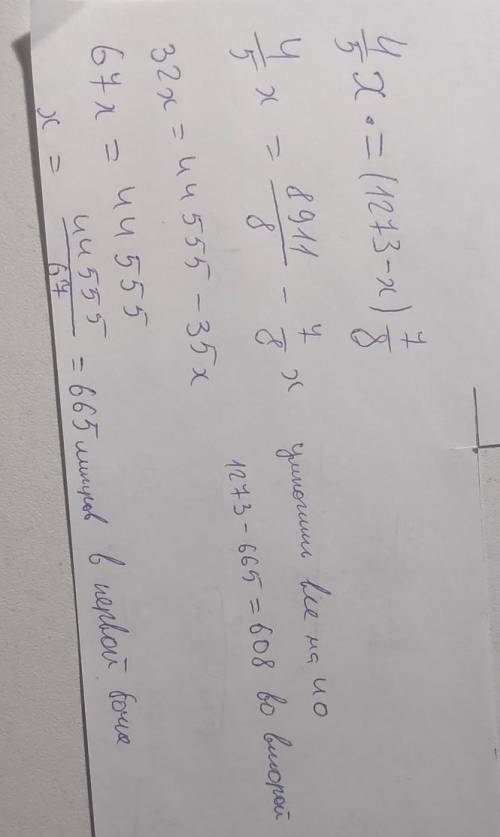 4/5 x · = (1273 - x) 7/8
4/5 x = 8911/8 - 7/8 x умножим все на 40
32x = 44555 - 35x 1273 - 665 = 608 во второй
67x = 44555
x = 44555/67 = 665 литров в первой бочке